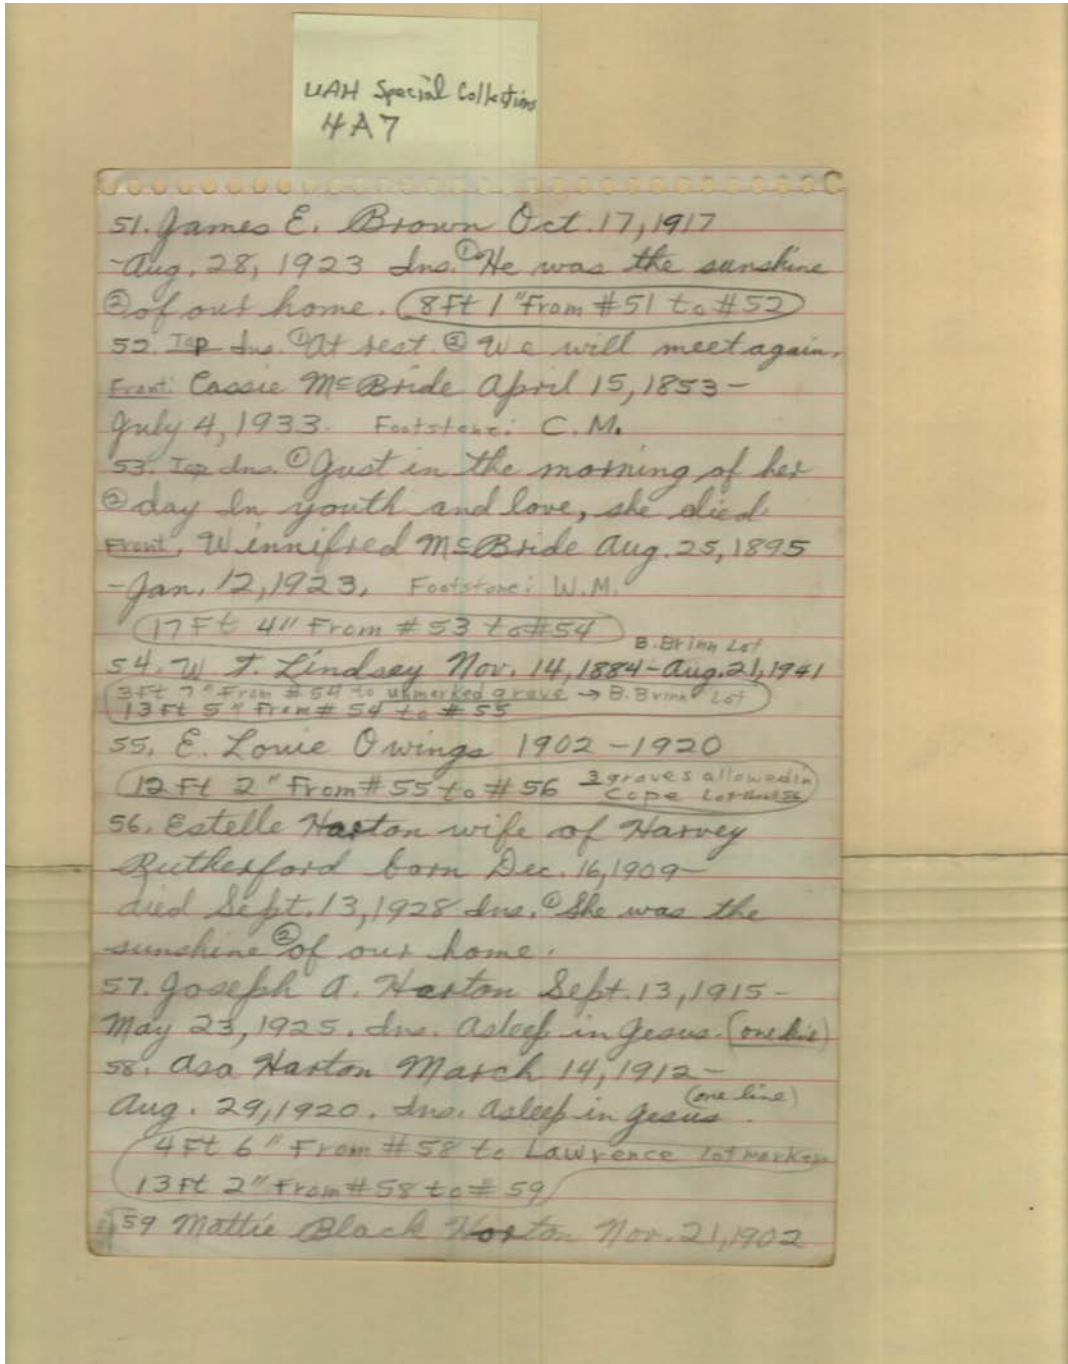 UAH Special Collections
4A7
51. James E. Brown Oct. 17, 1917
-Aug. 28, 1923 Ins. ① He was the sunshine
② of our home. (8 Ft 1" From #51 to #52)
52. Top Ins. ① At rest. ② We will meet again.
Front: Cassie McBride April 15, 1853-
July 4, 1933. Footstone: C.M.
53. Top Ins. ① Just in the morning of her
② day In youth and love, she died.
Front, Winnifred McBride Aug. 25, 1895
-Jan. 12, 1923. Footstone: W.M.
17 Ft 4" From #53 to #54
B. Brinn Lot
54. W. T. Lindsey Nov. 14, 1884-Aug. 21, 1941
3 Ft 7" From #54 to unmarked grave → B. Brinn Lot
13 Ft 5" From #54 to #55
55. E. Louie Owings 1902-1920
12 Ft 2" From #55 to #56 3 graves allowed in
Cope Lot
56. Estelle Harton wife of Harvey
Rutherford born Dec. 16, 1909-
died Sept. 13, 1928 Ins. ① She was the
sunshine ② of our home.
57. Joseph A. Harton Sept. 13, 1915-
May 23, 1925. Ins. Asleep in Jesus. (one line)
58. Asa Harton March 14, 1912-
(one line)
Aug. 29, 1920. Ins. Asleep in Jesus.
4 Ft 6" From #58 to Lawrence lot marker
13 Ft 2" From #58 to #59
59 Mattie Black Horton Nov. 21, 1902